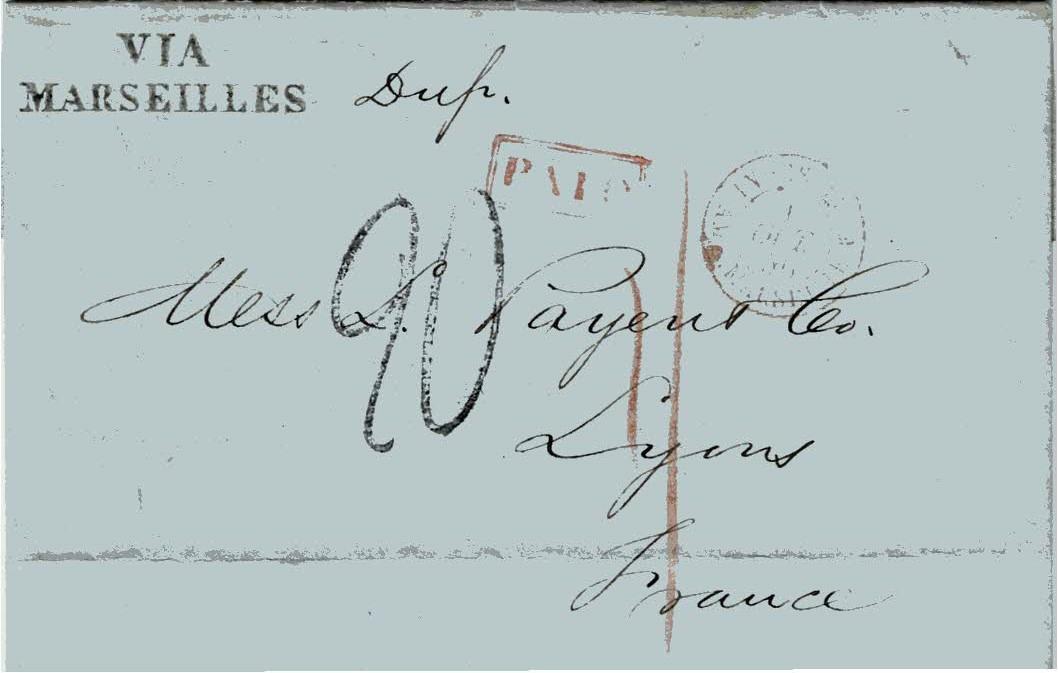 VIA
MARSEILLES
Dup.
PAID
90
Mess L. Payen & Co.
Lyons
France